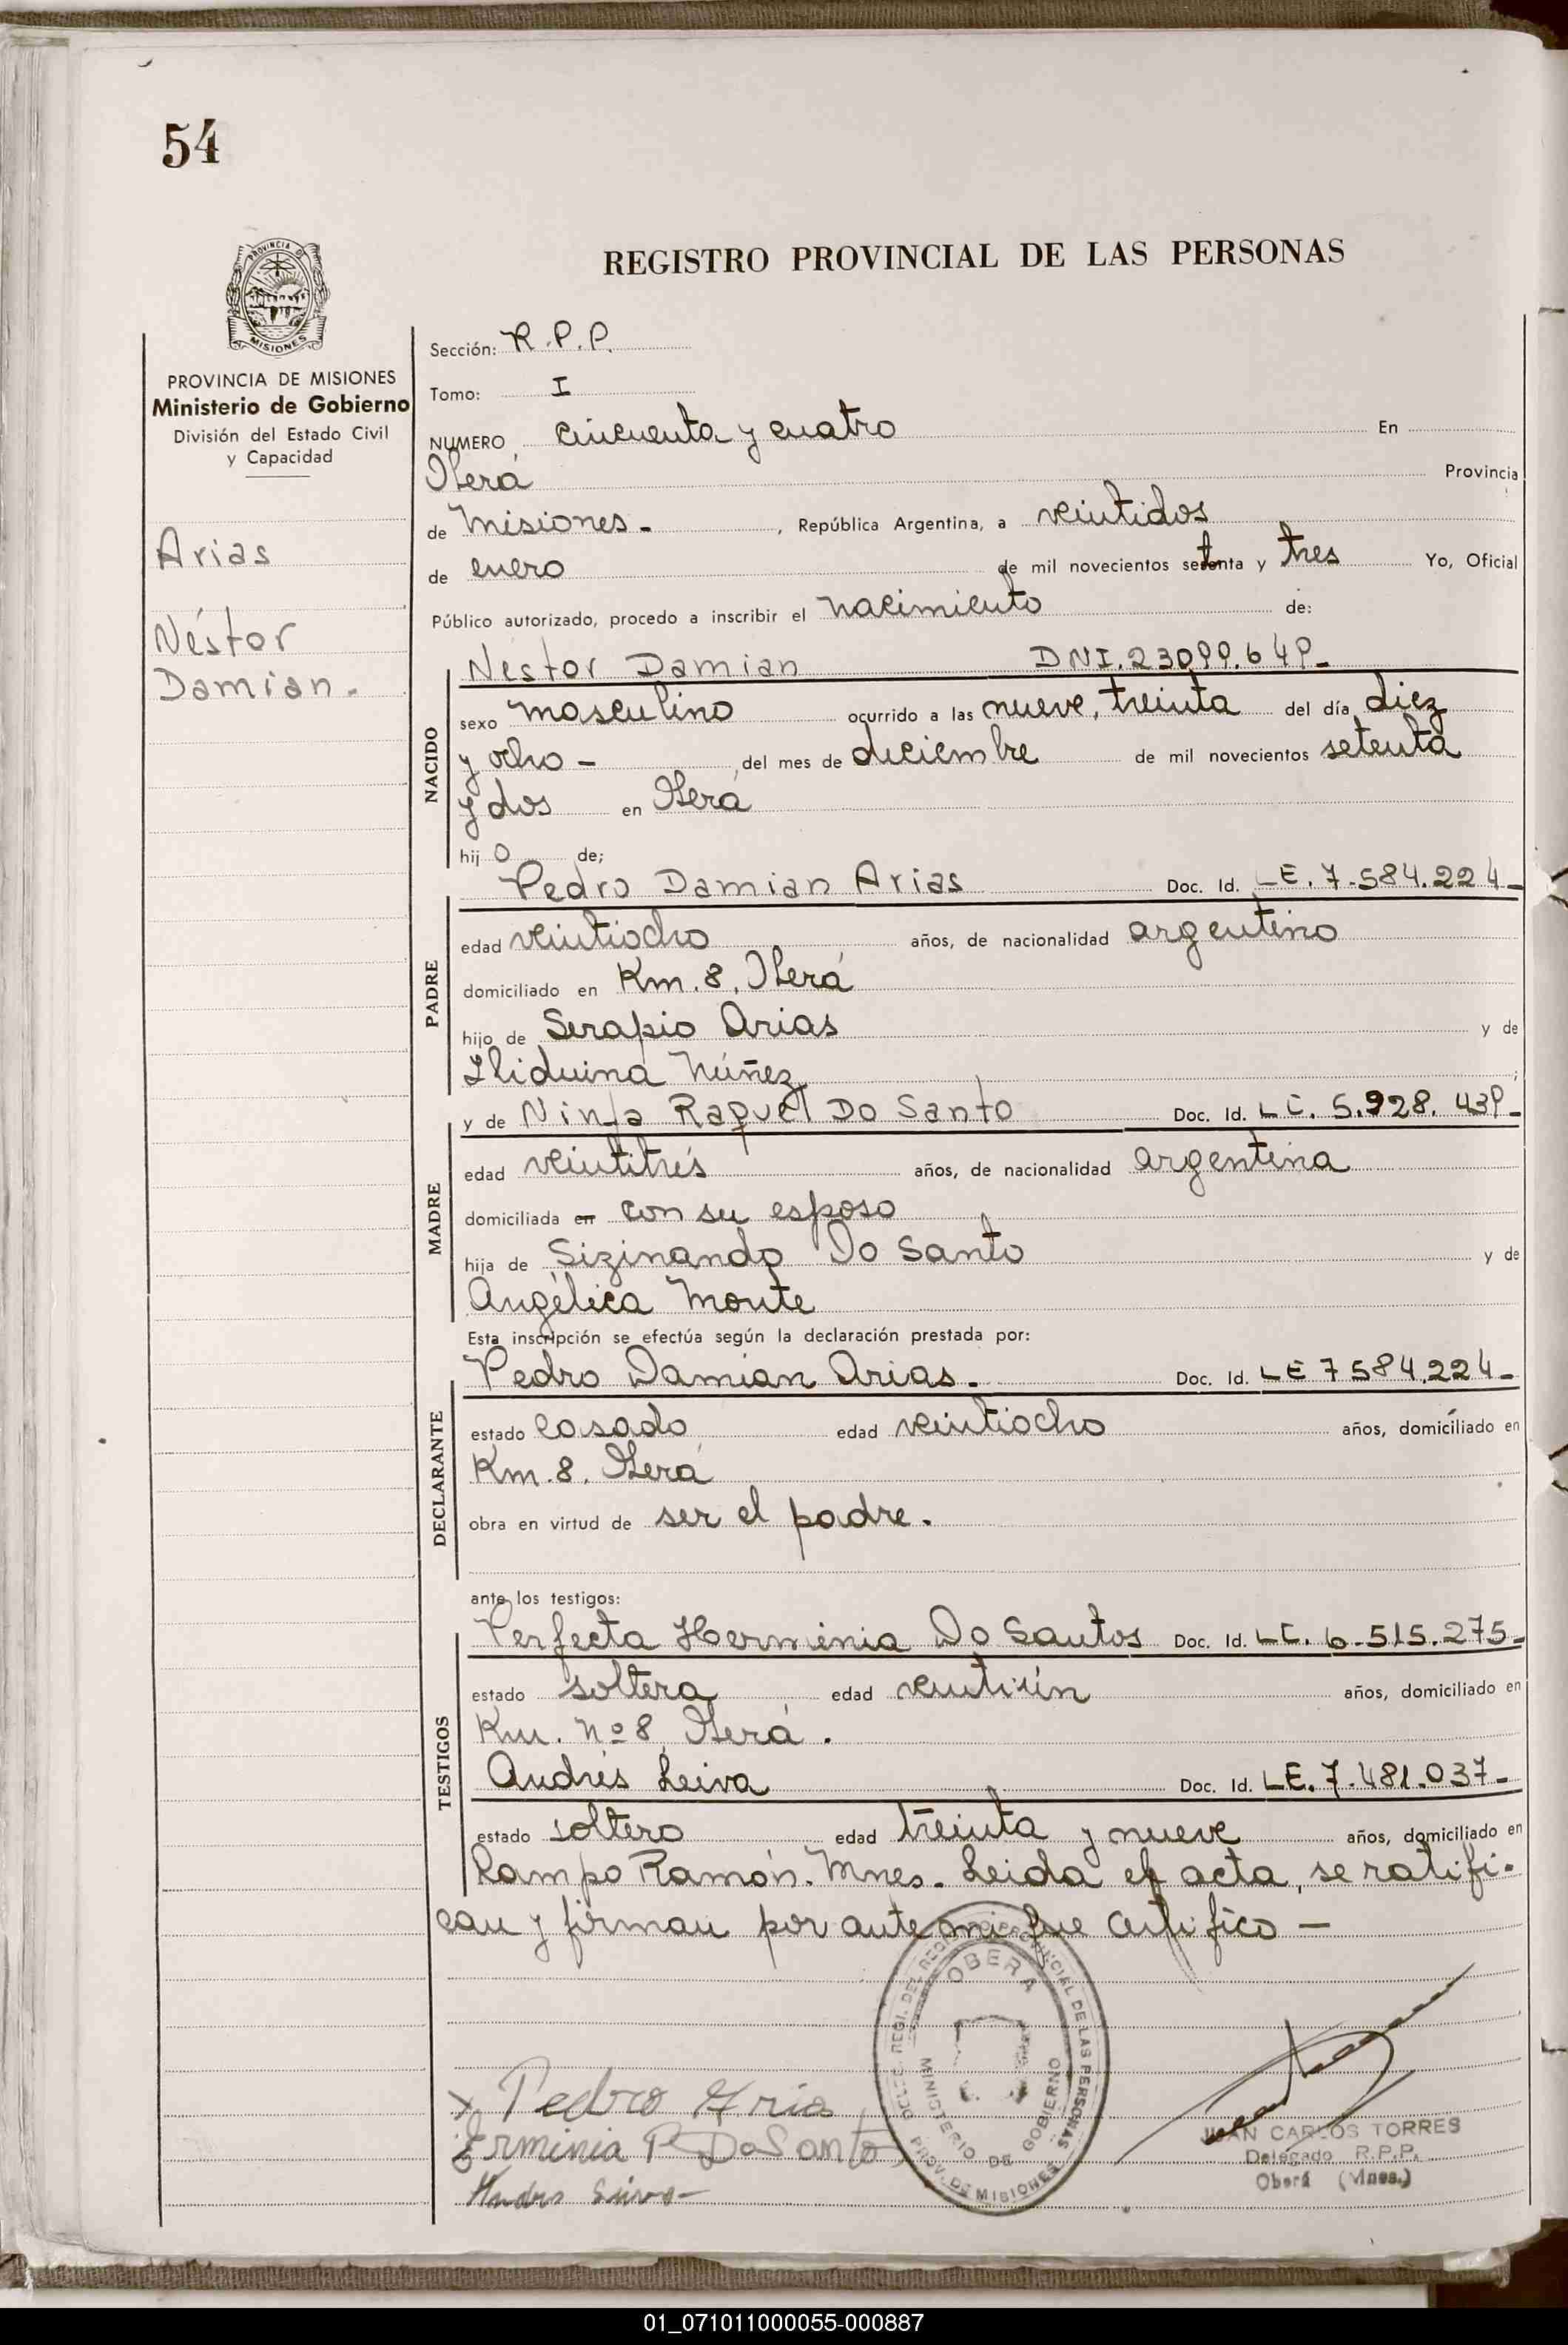 54
PROVINCIA D
MISIONES
PROVINCIA DE MISIONES
Ministerio de Gobierno
División del Estado Civil
y Capacidad
Arias
Néstor
Damian.
REGISTRO PROVINCIAL DE LAS PERSONAS
Sección: R.P.P.
Tomo: I
NUMERO cincuenta y cuatro En
Oberá Provincia
de Misiones - , República Argentina, a veintidos
de enero de mil novecientos setenta y tres Yo, Oficial
Público autorizado, procedo a inscribir el nacimiento de:
Nestor Damian DNI.23099.649-
NACIDO
sexo masculino ocurrido a las nueve, treinta del día diez
y ocho - del mes de diciembre de mil novecientos setenta
y dos en Oberá
hij o de;
Pedro Damian Arias Doc. Id. LE. 7.584.224-
PADRE
edad veintiocho años, de nacionalidad argentino
domiciliado en Km. 8. Oberá
hijo de Serapio Arias y de
Liduina Núñez ;
y de Ninfa Raquel Do Santo Doc. Id. LC. 5.928.439-
MADRE
edad veintitrés años, de nacionalidad argentina
domiciliada en con su esposo
hija de Sizinando Do Santo y de
Angélica Monte
Esta inscripción se efectúa según la declaración prestada por:
Pedro Damian Arias. Doc. Id. LE 7584.224-
DECLARANTE
estado casado edad veintiocho años, domiciliado en
Km. 8. Oberá
obra en virtud de ser el padre.
ante los testigos:
Perfecta Herminia Do Santos Doc. Id. LC. 6.515.275-
TESTIGOS
estado soltera edad veintiún años, domiciliado en
Km. Nº 8, Oberá.
Andrés Leiva Doc. Id. LE. 7.481.037-
estado soltero edad treinta y nueve años, domiciliado en
Campo Ramón. Mnes. Leida el acta, se ratifi-
can y firman por ante mi que certifico -
DELEG. REGI. DEL REGISTRO PROVINCIAL DE LAS PERSONAS
OBERA
MINISTERIO DE GOBIERNO
PROV. DE MISIONES
x Pedro Aria
Erminia P DoSanto
Andrs Leiva-
JUAN CARLOS TORRES
Delegado R.P.P.
Oberá (Mnes.)
01_071011000055-000887